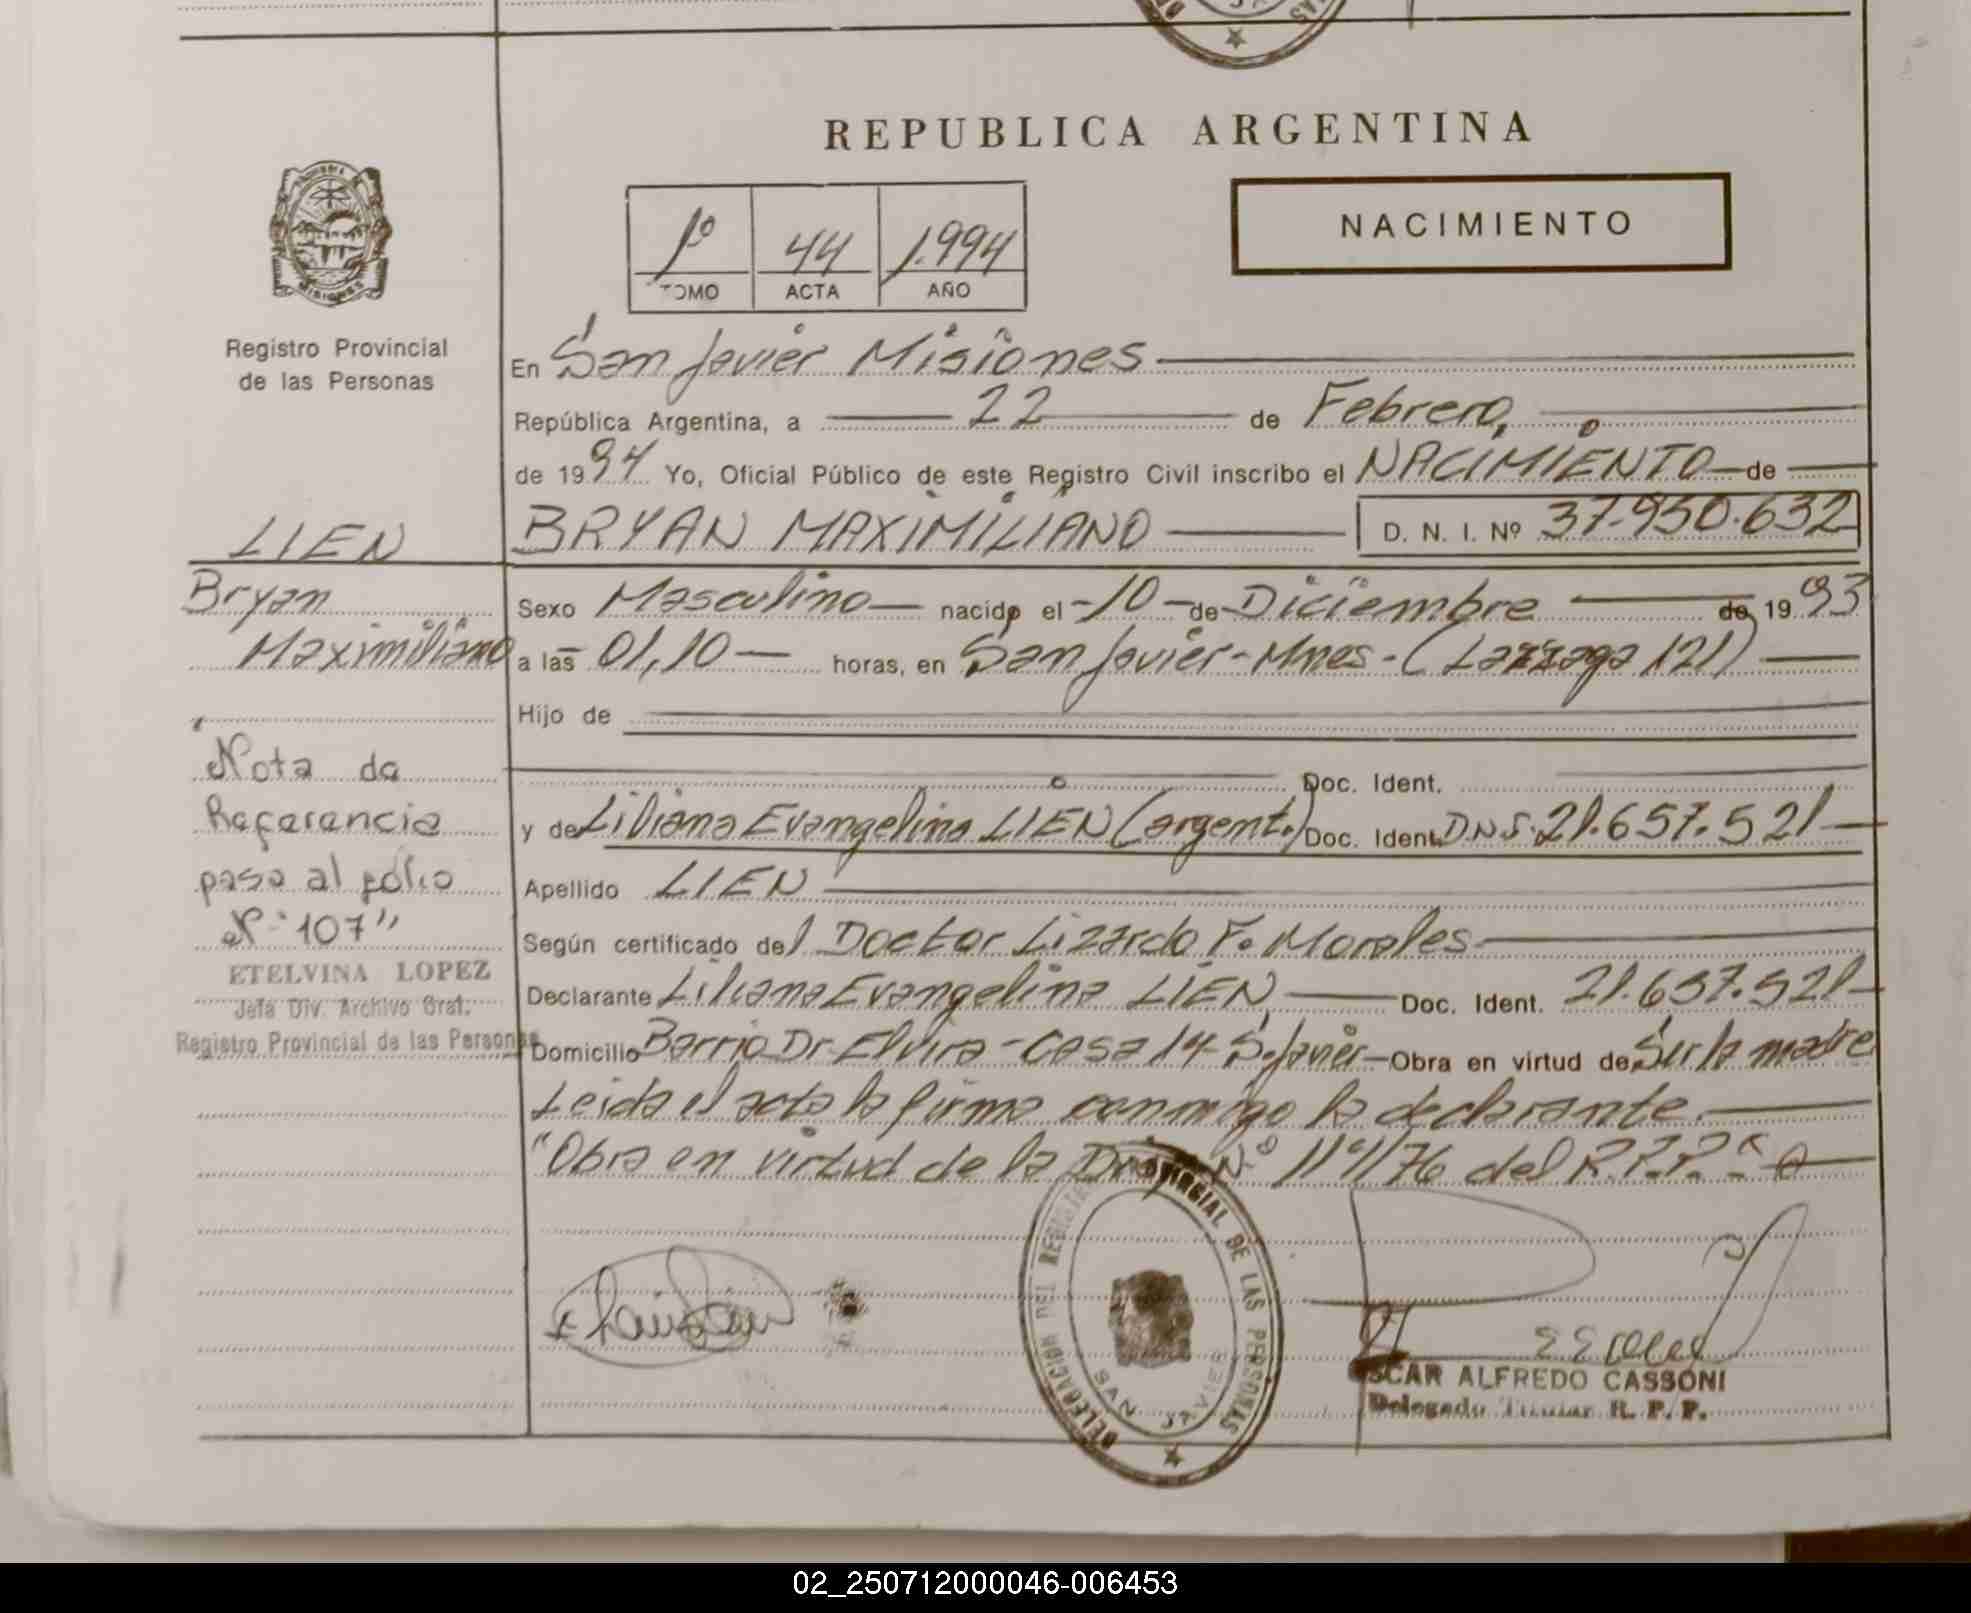 REPUBLICA ARGENTINA
NACIMIENTO
1º 44 1.994
TOMO ACTA AÑO
Registro Provincial
de las Personas
En San Javier Misiones
República Argentina, a 22 de Febrero,
de 1994 Yo, Oficial Público de este Registro Civil inscribo el NACIMIENTO de
BRYAN MAXIMILIANO D. N. I. Nº 37.950.632
Sexo Masculino nacido el -10- de Diciembre de 1993
a las 01,10 horas, en San Javier-Mnes-(Lazzaga 121)
Hijo de
Doc. Ident.
y de Liliana Evangelina LIEN (argent.) Doc. Ident. D.N.I. 21.657.521
Apellido LIEN
Según certificado del Doctor Lizardo F. Morales
Declarante Liliana Evangelina LIEN Doc. Ident. 21.657.521
Domicilio Barrio Dr. Elvira-Casa 14-S. Javier Obra en virtud de Ser la madre
Leida el acta la firma conmigo la declarante.
"Obra en virtud de la Nº del R.P.P."
LIEN
Bryan
Maximiliano
Nota de
Referencia
pasa al folio
Nº "107"
ETELVINA LOPEZ
Jefa Div. Archivo Gral.
Registro Provincial de las Personas
DELEGACION DEL REGISTRO PROVINCIAL DE LAS PERSONAS
SAN JAVIER
OSCAR ALFREDO CASSONI
Delegado Titular R. P. P.
02_250712000046-006453